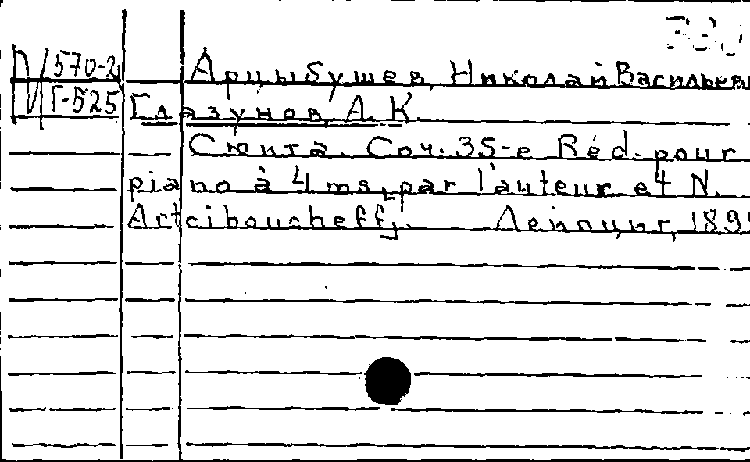 570-2 Арцыбушев, Николай Васильеви
Г-525 Глазунов, А. К.
Сюита. Соч. 35-е Réd. pour
piano à 4 ms, par l'auteur et N.
Artciboucheff,. Лейпциг, 189